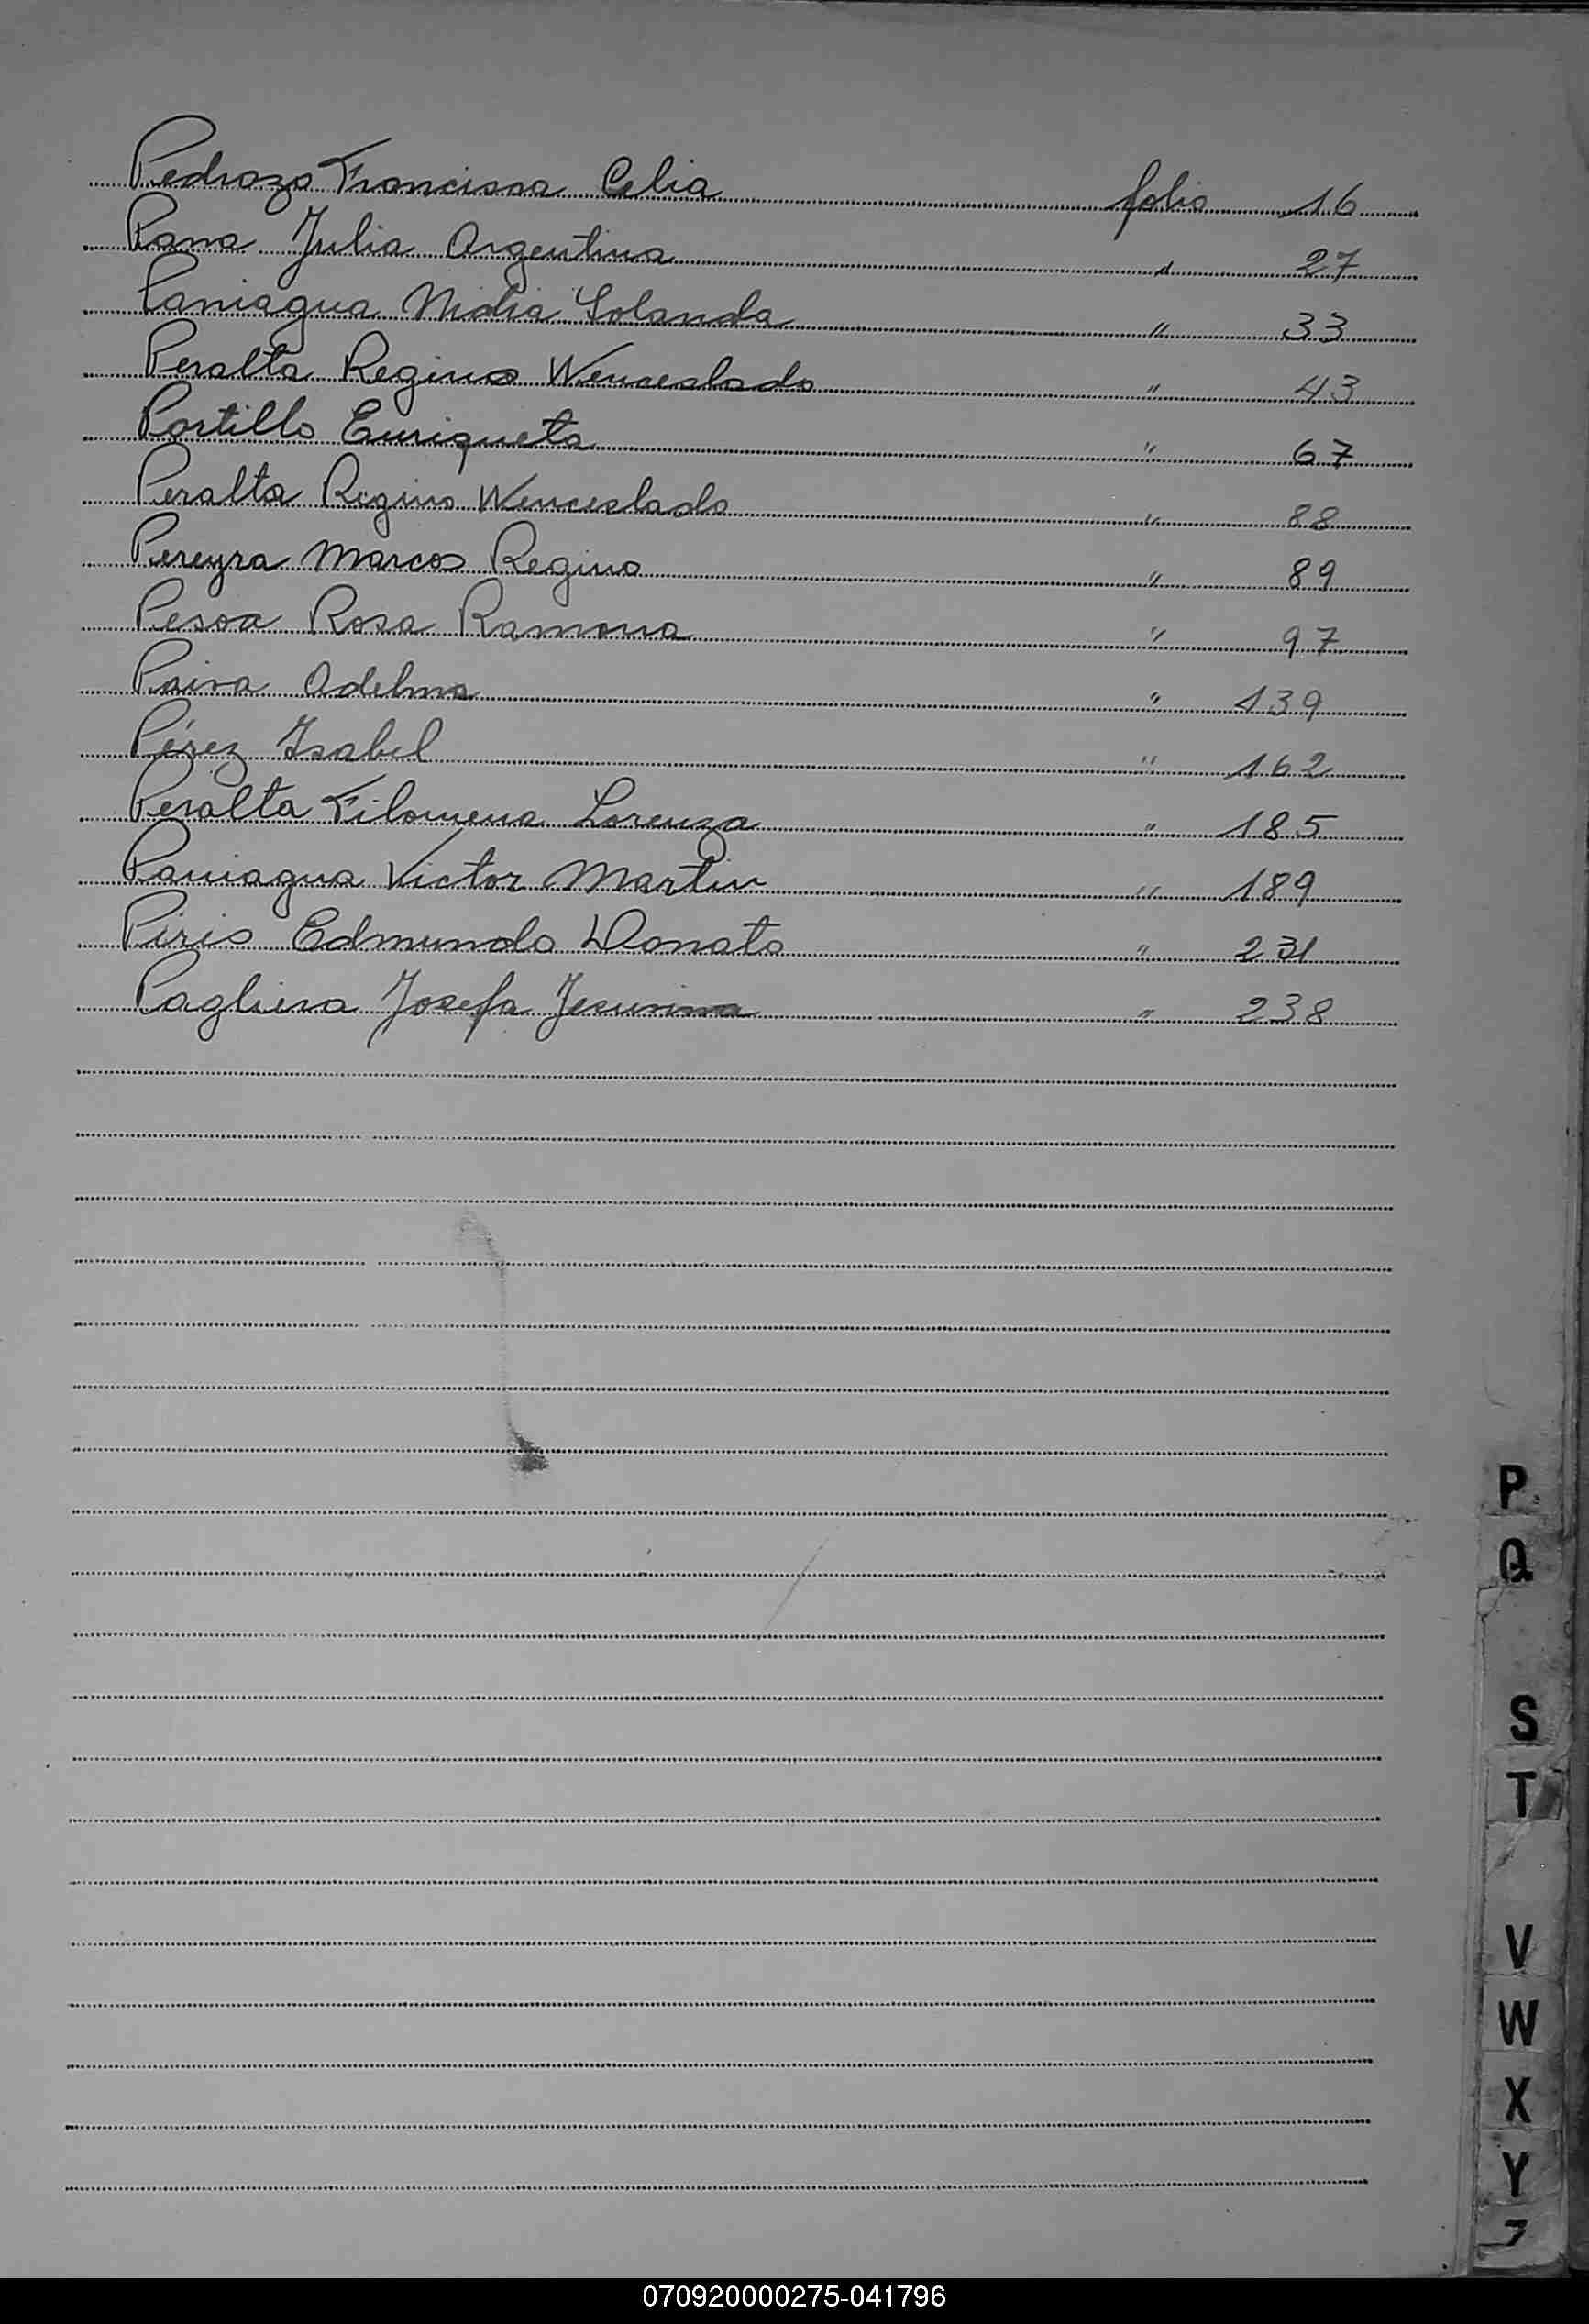 Pedrozo Francisca Celia folio 16
Parra Julia Argentina " 27
Paniagua Nidia Yolanda " 33
Peralta Regino Wenceslado " 43
Portillo Enriqueta " 67
Peralta Regino Wenceslado " 88
Pereyra Marcos Regino " 89
Pesoa Rosa Ramona " 97
Paiva Adelma " 139
Pérez Isabel " 162
Peralta Filomena Lorenza " 185
Paniagua Victor Martin " 189
Piris Edmundo Donato " 231
Pagliera Josefa " 238
P
Q
S
T
V
W
X
Y
Z
070920000275-041796